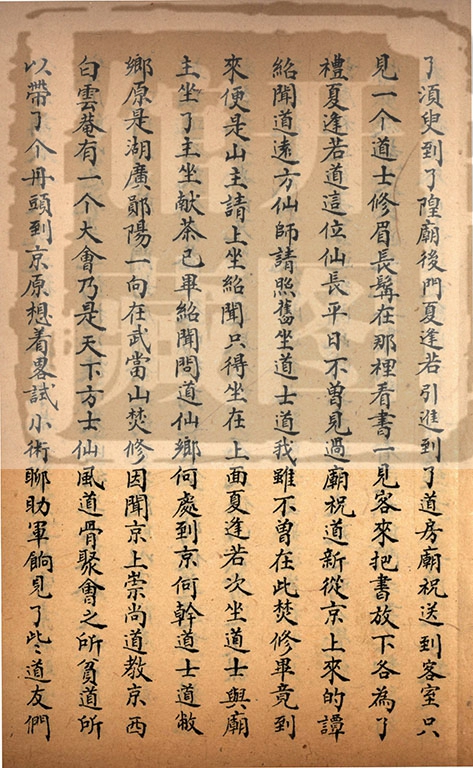 了須臾到了隍廟後門夏逢若引進到了道房廟祝送到客室只
見一个道士修眉長髯在那裡看書一見客來把書放下各為了
禮夏逢若道這位仙長平日不曾見過廟祝道新從京上來的譚
紹聞道遠方仙師請照舊坐道士道我雖不曾在此焚修畢竟到
來便是山主請上坐紹聞只得坐在上面夏逢若次坐道士與廟
主坐了主坐献茶已畢紹聞問道仙鄉何處到京何幹道士道敝
鄉原是湖廣鄖陽一向在武當山焚修因聞京上崇尚道教京西
白雲菴有一个大會乃是天下方士仙風道骨聚會之所貧道所
以帶了个丹頭到京原想着畧試小術聊助軍餉見了些道友們